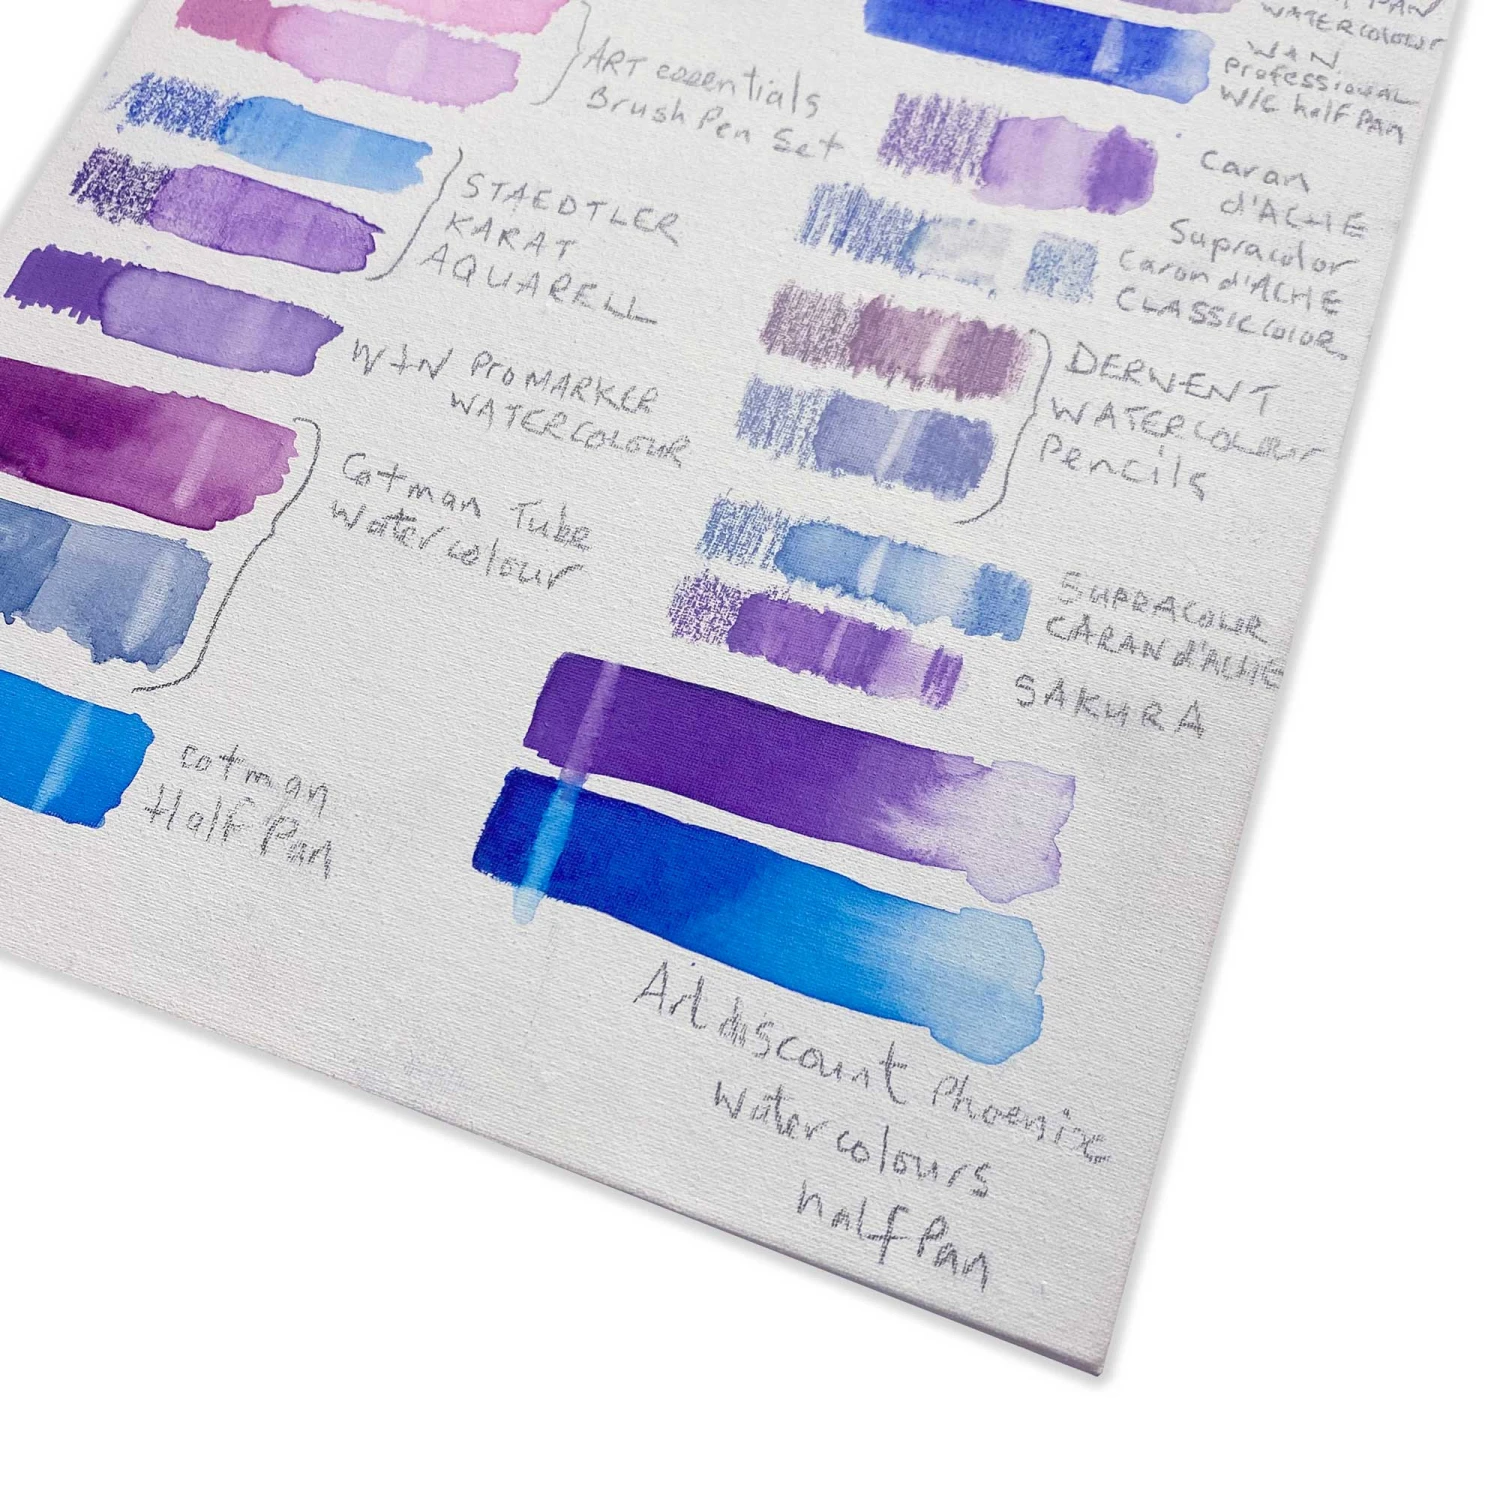 ART essentials
Brush Pen Set
STAEDTLER
KARAT
AQUARELL
W+N ProMARKER
WATERCOLOUR
Cotman Tube
Watercolour
cotman
Half Pan
PAN
WATERCOLOUR
W+N
professional
W/C half PAN
Caran
d'ACHE
Supracolor
Caran d'ACHE
CLASSICCOLOR
DERWENT
WATERCOLOUR
Pencils
SUPRACOLOUR
CARAN d'ACHE
SAKURA
Artdiscount Phoenix
Watercolours
half Pan